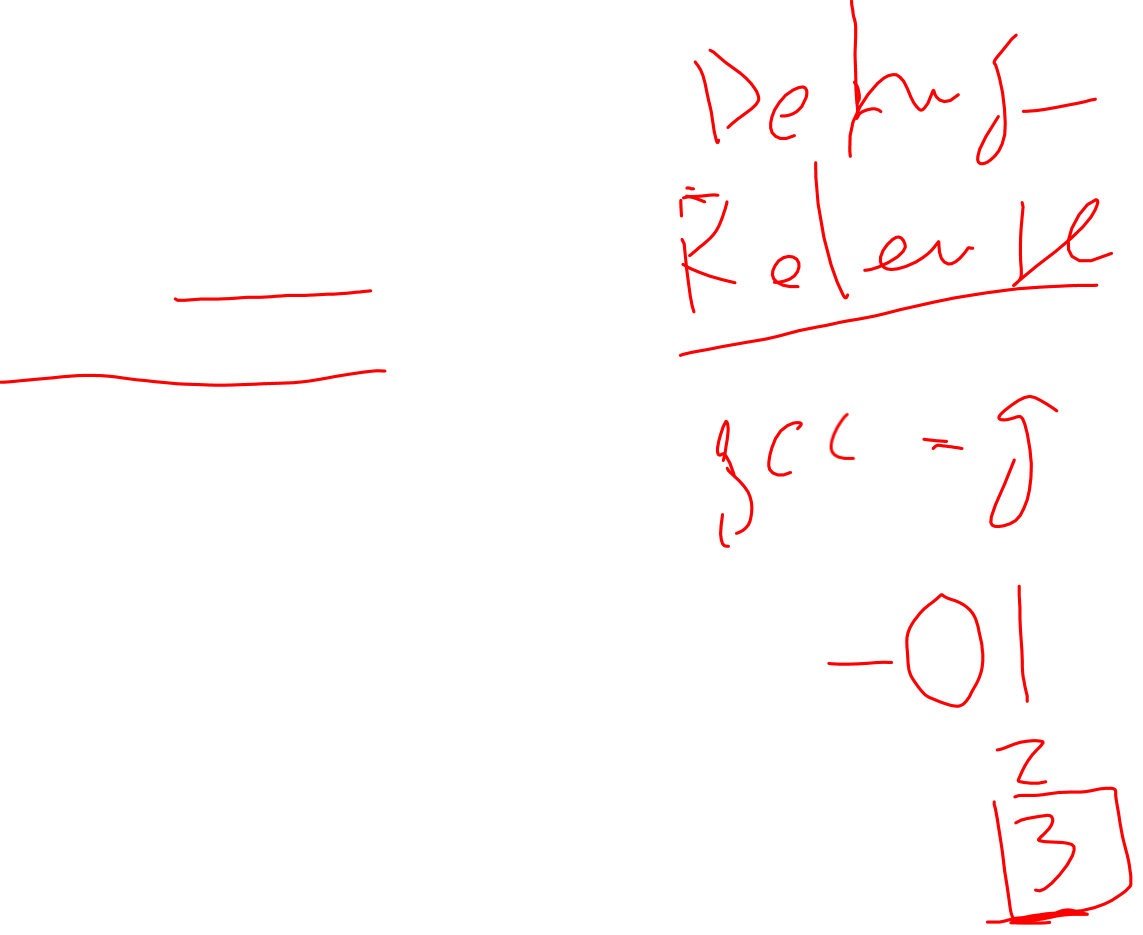 Debug
Release
gcc -g
-O1
2
3